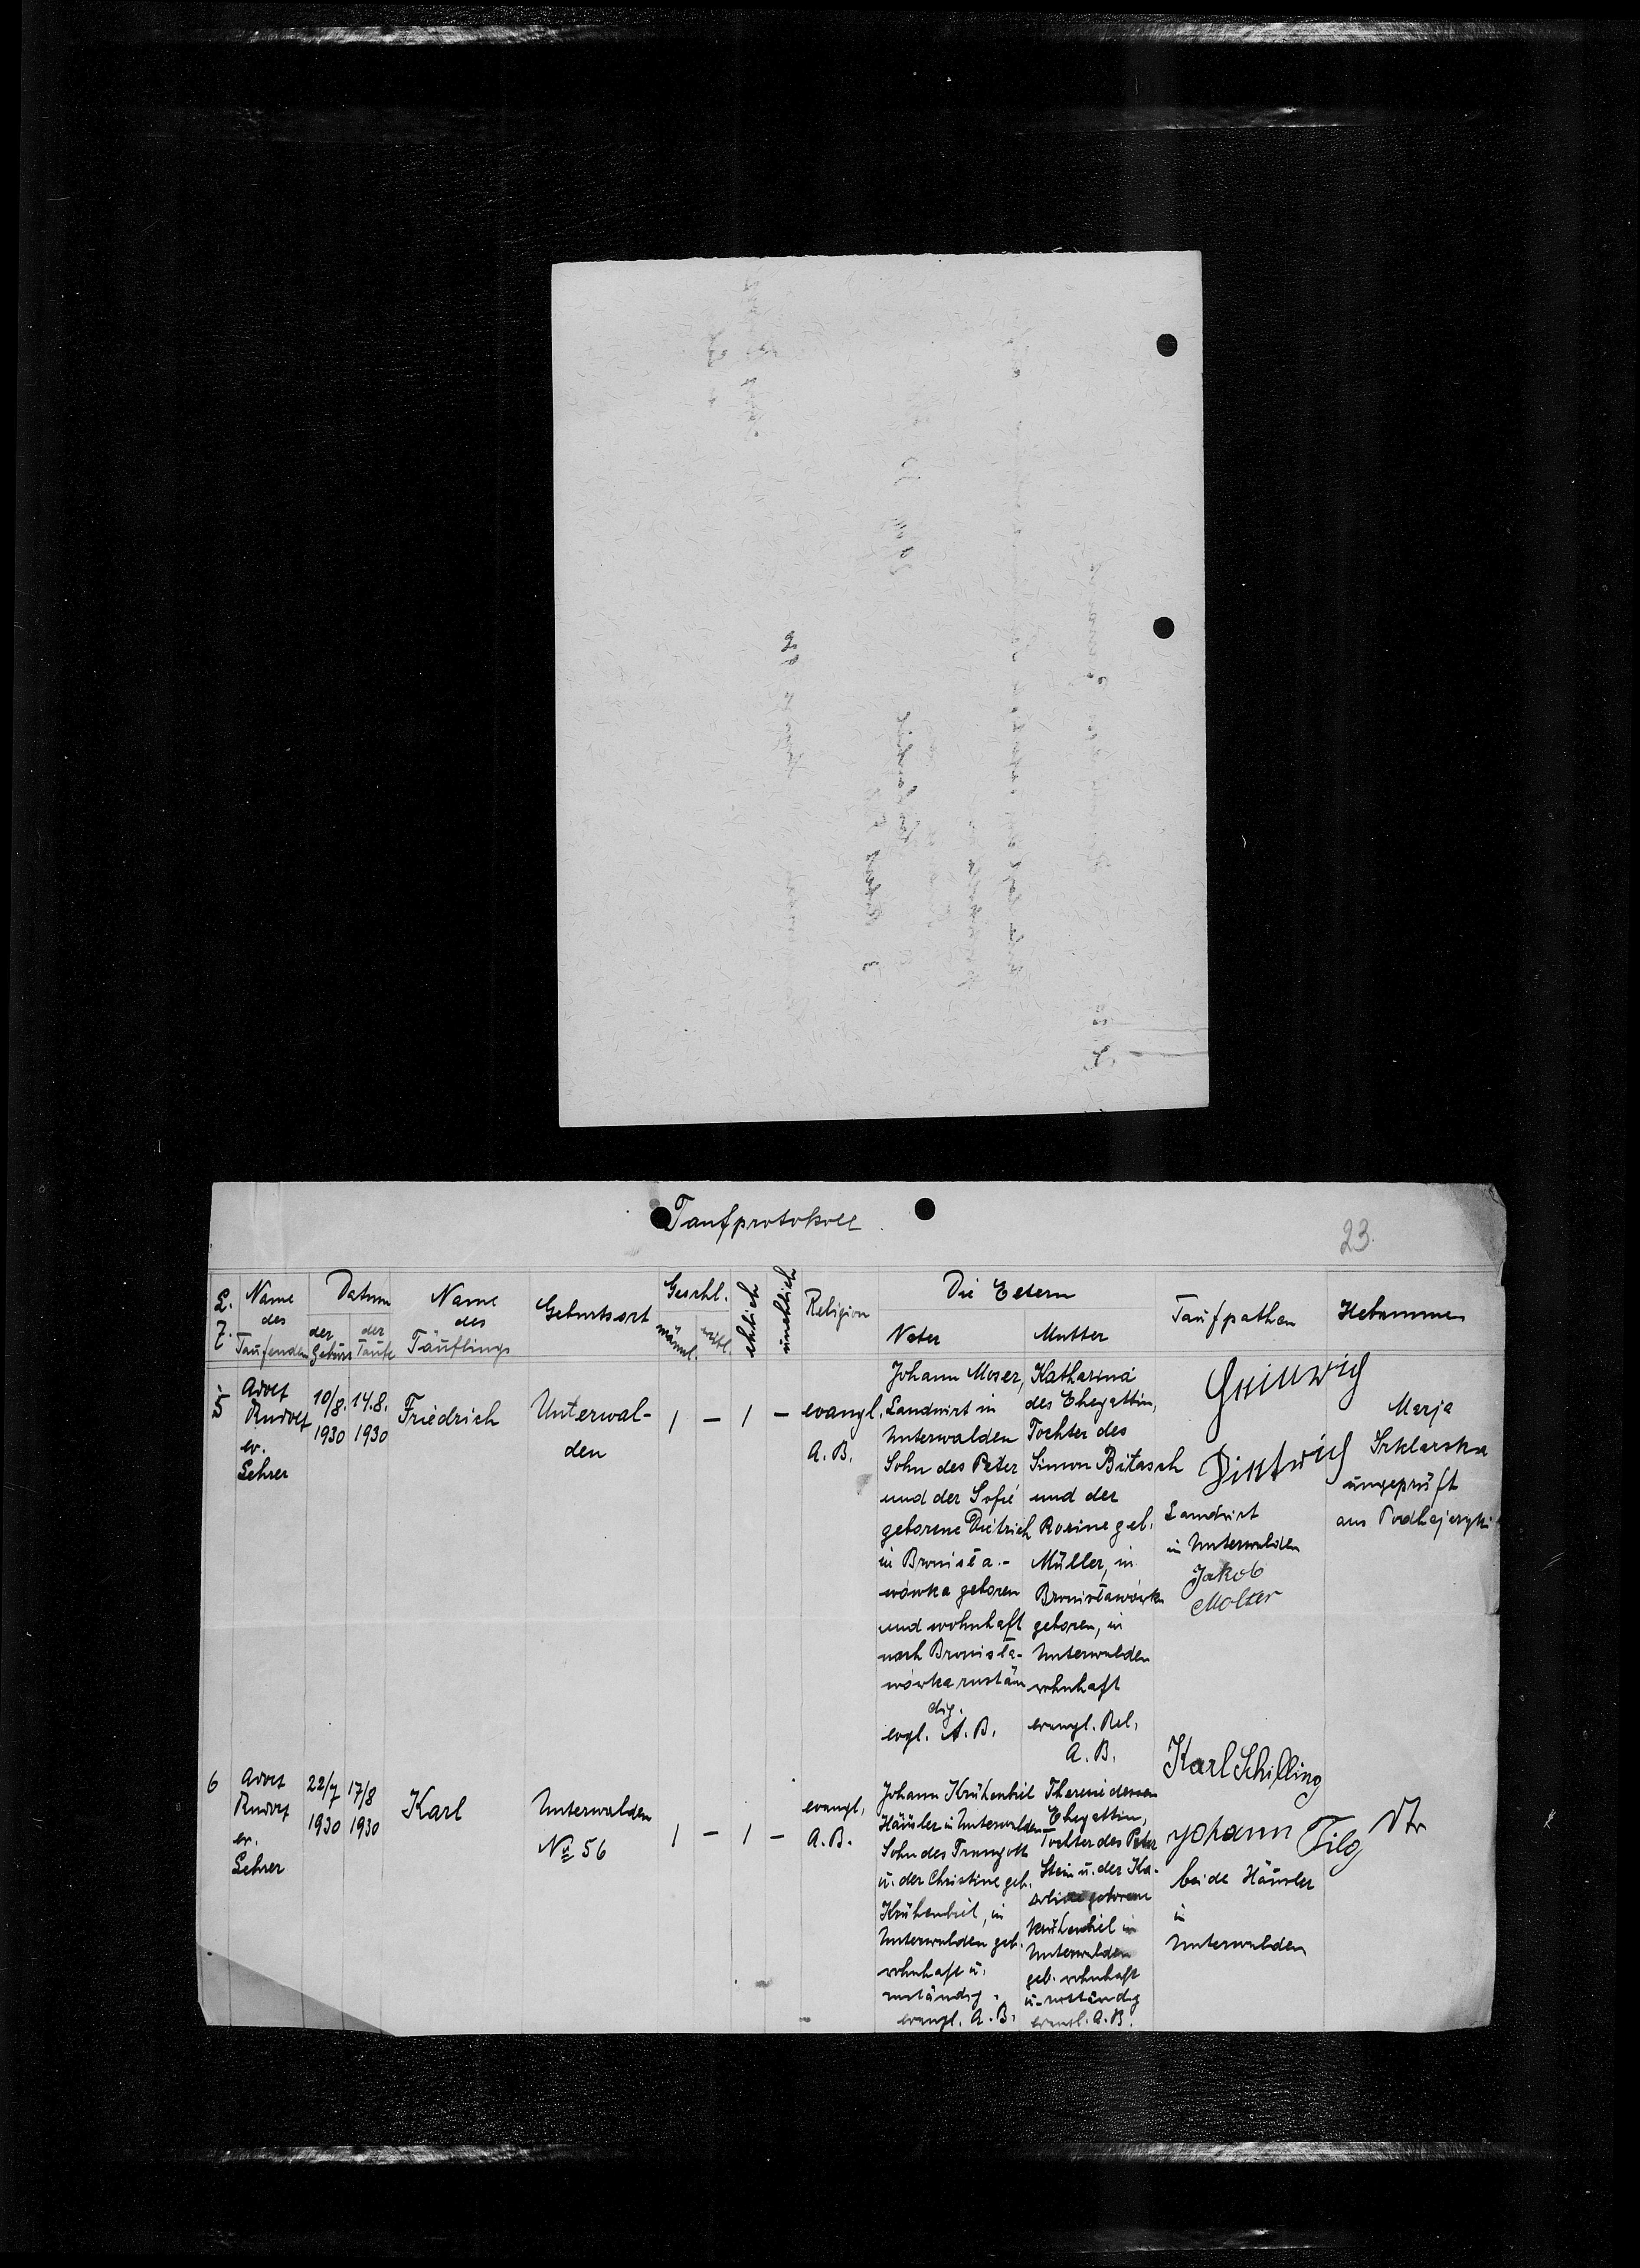 Taufprotokoll
23.
L. Z.
Name des Taufenden
Datum
der Geburt
der Taufe
Name des Täuflings
Geburtsort
Geschl.
männl.
weibl.
ehlich
unehlich
Religion
Die Eltern
Vater
Mutter
Taufpathen
Hebamme
5
Adolf
Rudolf
ev.
Lehrer
10/8.
1930
14.8.
1930
Friedrich
Unterwal-
den
1
–
1
–
evangl.
A. B.
Johann Moser,
Landwirt in
Unterwalden
Sohn des Peter
und der Sofie
geborene Dietrich
in Bronisła-
wówka geboren
und wohnhaft
nach Bronisła-
wówka zustän
dig.
evgl. A. B.
Katharina
des Ehegattin,
Tochter des
Simon Bitasch
und der
Rosine geb.
Müller, in
Bronisławówka
geboren, in
Unterwalden
wohnhaft
evangl. Rel.
A. B.
Landwirt
in Unterwalden
Jakob
Molter
Marja
Szklarska
ungeprüft
aus Podhajczyki
6
Adolf
Rudolf
ev.
Lehrer
22/7
1930
17/8
1930
Karl
Unterwalden
№ 56
1
–
1
–
evangl.
A. B.
Johann Krühenbiel
Häusler in Unterwalden
Sohn des Traugott
u. der Christine geb.
Krühenbiel, in
Unterwalden geb.
wohnhaft u.
zuständig.
evangl. A. B.
Theresie dessen
Ehegattin,
Tochter des Peter
Stein u. der Ka-
geborene
Krühenbiel in
Unterwalden
geb. wohnhaft
u. zuständig
evangl. A. B.
Karl Schilling
Johann Filg
beide Häusler
in
Unterwalden